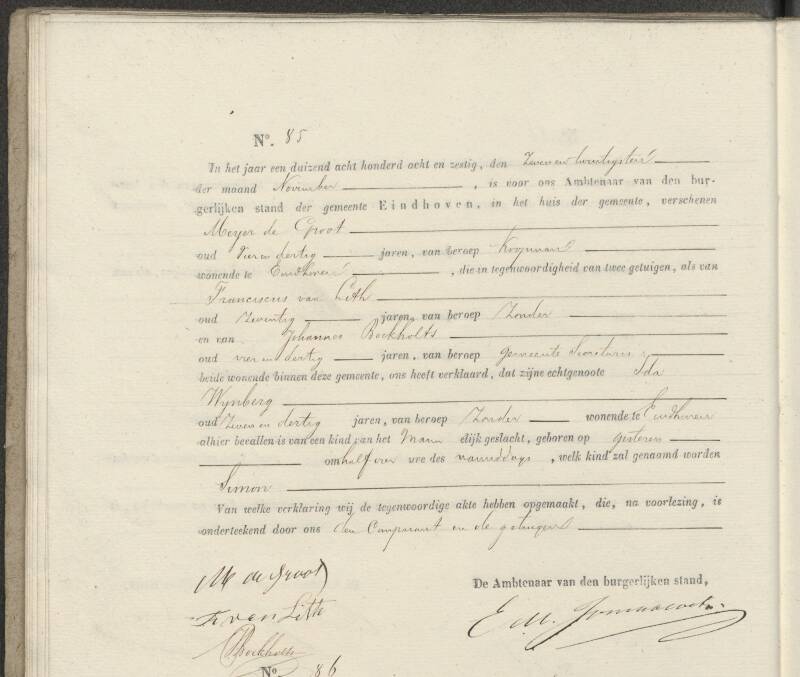 N°. 85
In het jaar een duizend acht honderd acht en zestig, den Zevenentwintigsten
der maand November, is voor ons Ambtenaar van den bur-
gerlijken stand der gemeente Eindhoven, in het huis der gemeente, verschenen
Meyer de Groot
oud Vier en dertig jaren, van beroep Koopman
wonende te Eindhoven, die in tegenwoordigheid van twee getuigen, als van
Franciscus van Lith
oud Zeventig jaren, van beroep Zonder
en van Johannes Bockholts
oud vier en dertig jaren, van beroep gemeente Secretaris,
beide wonende binnen deze gemeente, ons heeft verklaard, dat zijne echtgenoote Ida
Wynberg
oud Zeven en dertig jaren, van beroep Zonder wonende te Eindhoven
alhier bevallen is van een kind van het Mann elijk geslacht, geboren op gisteren
om half vier ure des namiddags, welk kind zal genaamd worden
Simon
Van welke verklaring wij de tegenwoordige akte hebben opgemaakt, die, na voorlezing, is
onderteekend door ons den Comparant en de getuigen
M de Groot
De Ambtenaar van den burgerlijken stand,
F. van Lith
Bockholts
N°. 86